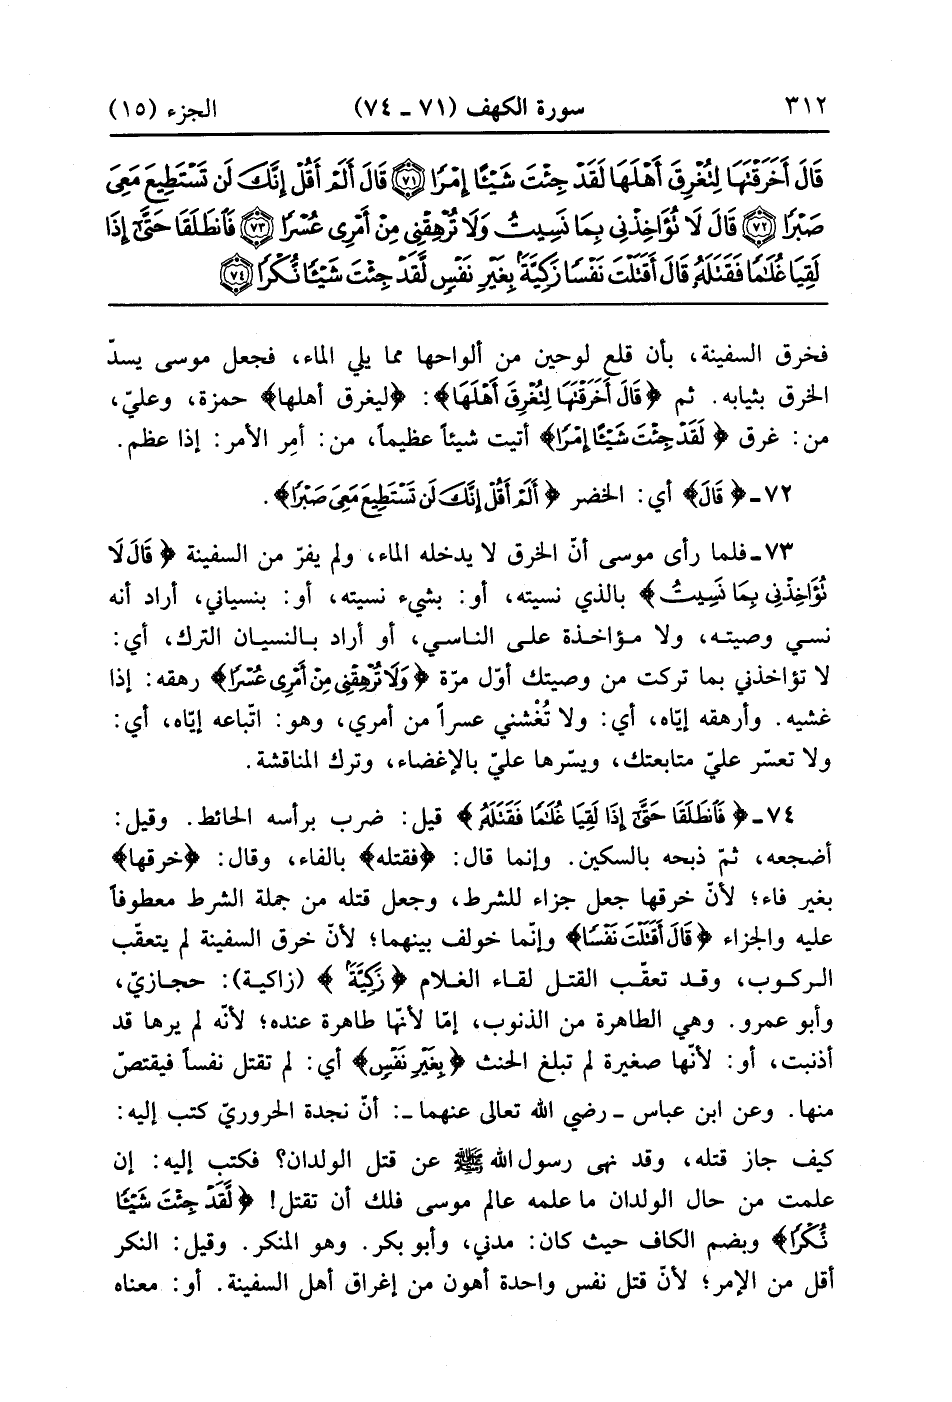 ٣١٢ سورة الكهف (٧١ ـ ٧٤) الجزء (١٥)
قَالَ أَخَرَقْتَهَا لِتُغْرِقَ أَهْلَهَا لَقَدْ جِئْتَ شَيْئًا إِمْرًا ﴿٧١﴾ قَالَ أَلَمْ أَقُلْ إِنَّكَ لَن تَسْتَطِيعَ مَعِىَ
صَبْرًا ﴿٧٢﴾ قَالَ لَا تُؤَاخِذْنِى بِمَا نَسِيتُ وَلَا تُرْهِقْنِى مِنْ أَمْرِى عُسْرًا ﴿٧٣﴾ فَٱنطَلَقَا حَتَّىٰٓ إِذَا
لَقِيَا غُلَٰمًا فَقَتَلَهُۥ قَالَ أَقَتَلْتَ نَفْسًا زَكِيَّةًۢ بِغَيْرِ نَفْسٍ لَّقَدْ جِئْتَ شَيْـًٔا نُّكْرًا ﴿٧٤﴾
فخرق السفينة، بأن قلع لوحين من ألواحها مما يلي الماء، فجعل موسى يسدّ
الخرق بثيابه. ثم ﴿قَالَ أَخَرَقْتَهَا لِتُغْرِقَ أَهْلَهَا﴾: ﴿ليغرق أهلها﴾ حمزة، وعليّ،
من: غرق ﴿لَقَدْ جِئْتَ شَيْئًا إِمْرًا﴾ أتيت شيئاً عظيماً، من: أمِر الأمر: إذا عظم.
٧٢ـ ﴿قَالَ﴾ أي: الخضر ﴿أَلَمْ أَقُلْ إِنَّكَ لَن تَسْتَطِيعَ مَعِىَ صَبْرًا﴾.
٧٣ـ فلما رأى موسى أنّ الخرق لا يدخله الماء، ولم يفرّ من السفينة ﴿قَالَ لَا
تُؤَاخِذْنِى بِمَا نَسِيتُ﴾ بالذي نسيته، أو: بشيء نسيته، أو: بنسياني، أراد أنه
نسي وصيته، ولا مؤاخذة على الناسي، أو أراد بالنسيان الترك، أي:
لا تؤاخذني بما تركت من وصيتك أوّل مرّة ﴿وَلَا تُرْهِقْنِى مِنْ أَمْرِى عُسْرًا﴾ رهقه: إذا
غشيه. وأرهقه إيّاه، أي: ولا تُغْشني عسراً من أمري، وهو: اتّباعه إيّاه، أي:
ولا تعسّر عليّ متابعتك، ويسّرها عليّ بالإغضاء، وترك المناقشة.
٧٤ـ ﴿فَٱنطَلَقَا حَتَّىٰٓ إِذَا لَقِيَا غُلَٰمًا فَقَتَلَهُۥ﴾ قيل: ضرب برأسه الحائط. وقيل:
أضجعه، ثمّ ذبحه بالسكين. وإنما قال: ﴿فقتله﴾ بالفاء، وقال: ﴿خرقها﴾
بغير فاء؛ لأنّ خرقها جعل جزاء للشرط، وجعل قتله من جملة الشرط معطوفاً
عليه والجزاء ﴿قَالَ أَقَتَلْتَ نَفْسًا﴾ وإنّما خولف بينهما؛ لأنّ خرق السفينة لم يتعقّب
الركوب، وقد تعقّب القتل لقاء الغلام ﴿زَكِيَّةًۢ﴾ (زاكية): حجازيّ،
وأبو عمرو. وهي الطاهرة من الذنوب، إمّا لأنّها طاهرة عنده؛ لأنّه لم يرها قد
أذنبت، أو: لأنّها صغيرة لم تبلغ الحنث ﴿بِغَيْرِ نَفْسٍ﴾ أي: لم تقتل نفساً فيقتصّ
منها. وعن ابن عباس ـ رضي الله تعالى عنهما ـ: أنّ نجدة الحروريّ كتب إليه:
كيف جاز قتله، وقد نهى رسول الله ﷺ عن قتل الولدان؟ فكتب إليه: إن
علمت من حال الولدان ما علمه عالم موسى فلك أن تقتل! ﴿لَّقَدْ جِئْتَ شَيْـًٔا
نُّكْرًا﴾ وبضم الكاف حيث كان: مدني، وأبو بكر. وهو المنكر. وقيل: النكر
أقل من الإمر؛ لأنّ قتل نفس واحدة أهون من إغراق أهل السفينة. أو: معناه